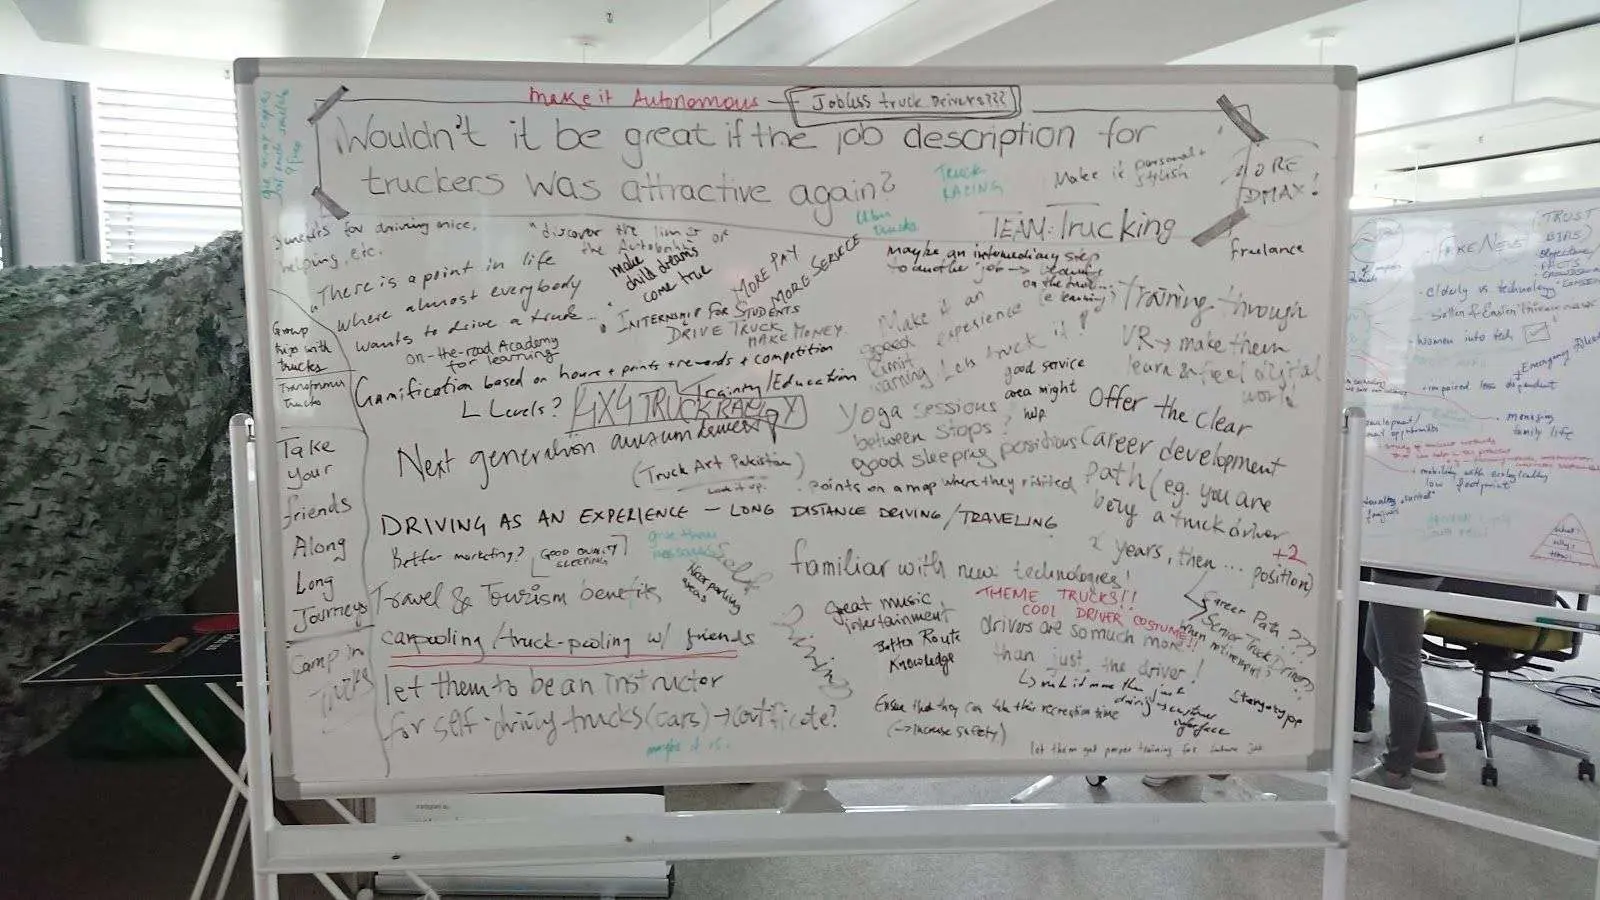 make it Autonomous — Jobless truck Drivers???
Wouldn't it be great if the job description for
truckers was attractive again?
TRUCK
RACING
Make it personal +
stylish
MORE
DMAX!
Uber
trucks
TEAM: Trucking
for driving nice,
helping, etc.
"discover the limits of
the Autobahn
make
child dreams
come true
MORE PAY
MORE SERVICE
"There is a point in life
where almost everybody
wants to drive a truck..."
INTERNSHIP FOR STUDENTS
DRIVE TRUCK
MAKE MONEY
on-the-road Academy
for learning
Gamification based on hours + points + rewards + competition
L Levels?
4X4 TRUCK RALLY
Training/Education
Next generation
(Truck Art Pakistan)
Look it up.
maybe an intermediary step
to another job →
on the road...
(e learning)
freelance
Make it an
speed experience
limit
warning
Let's truck it up
good service
area might
help
Training through
VR → make them
learn & feel digital
world
Yoga sessions
between stops?
good sleeping positions
points on a map where they visited
Offer the clear
career development
path (e.g. you are
being a truck driver
2 years, then ... position)
+2
DRIVING AS AN EXPERIENCE — LONG DISTANCE DRIVING/TRAVELING
Better marketing?
GOOD QUALITY
SLEEPING
give them
Near parking
areas
Travel & Tourism benefits
carpooling/truck-pooling w/ friends
let them to be an instructor
for self-driving trucks (cars) → certificate?
maybe it is.
familiar with new technologies!
THEME TRUCKS!!
COOL DRIVER COSTUME!!
great music
entertainment
Better Route
Knowledge
drivers are so much more
than just the driver!
↳ make it more than just
driving → customer
interface
Career Path ???
Senior Truck Driver?
when retirement?
Ensure that they can take their recreation time
(→ Increase safety)
let them get proper training for future job
Group
trips with
trucks
Transformer
Trucks
Take
your
friends
Along
Long
Journeys
Camp in
Trucks
TRUST
FAKE NEWS
BIAS
objective
FACTS
elderly vs technology
women into tech
impaired
dependent
managing
family life
+ mobility with ecologically
low footprint
What?
Why?
How?